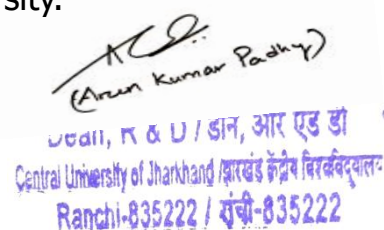 sity.
(Arun Kumar Padhy)
Dean, R & D / डीन, आर एंड डी
Central University of Jharkhand /झारखंड केंद्रीय विश्वविद्यालय
Ranchi-835222 / रांची-835222